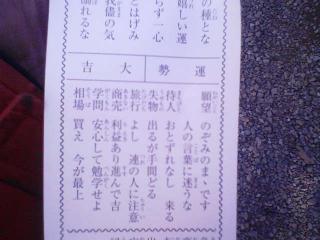 の種とな
嬉しい運
らず一心
とはげみ
我儘の気
溺れるな
運勢 大吉
願望 のぞみのまゝです
人の言葉に迷うな
待人 おとずれなし 来る
失物 出るが手間どる
旅行 よし 連の人に注意
商売 利益あり進んで吉
学問 安心して勉学せよ
相場 買え 今が最上